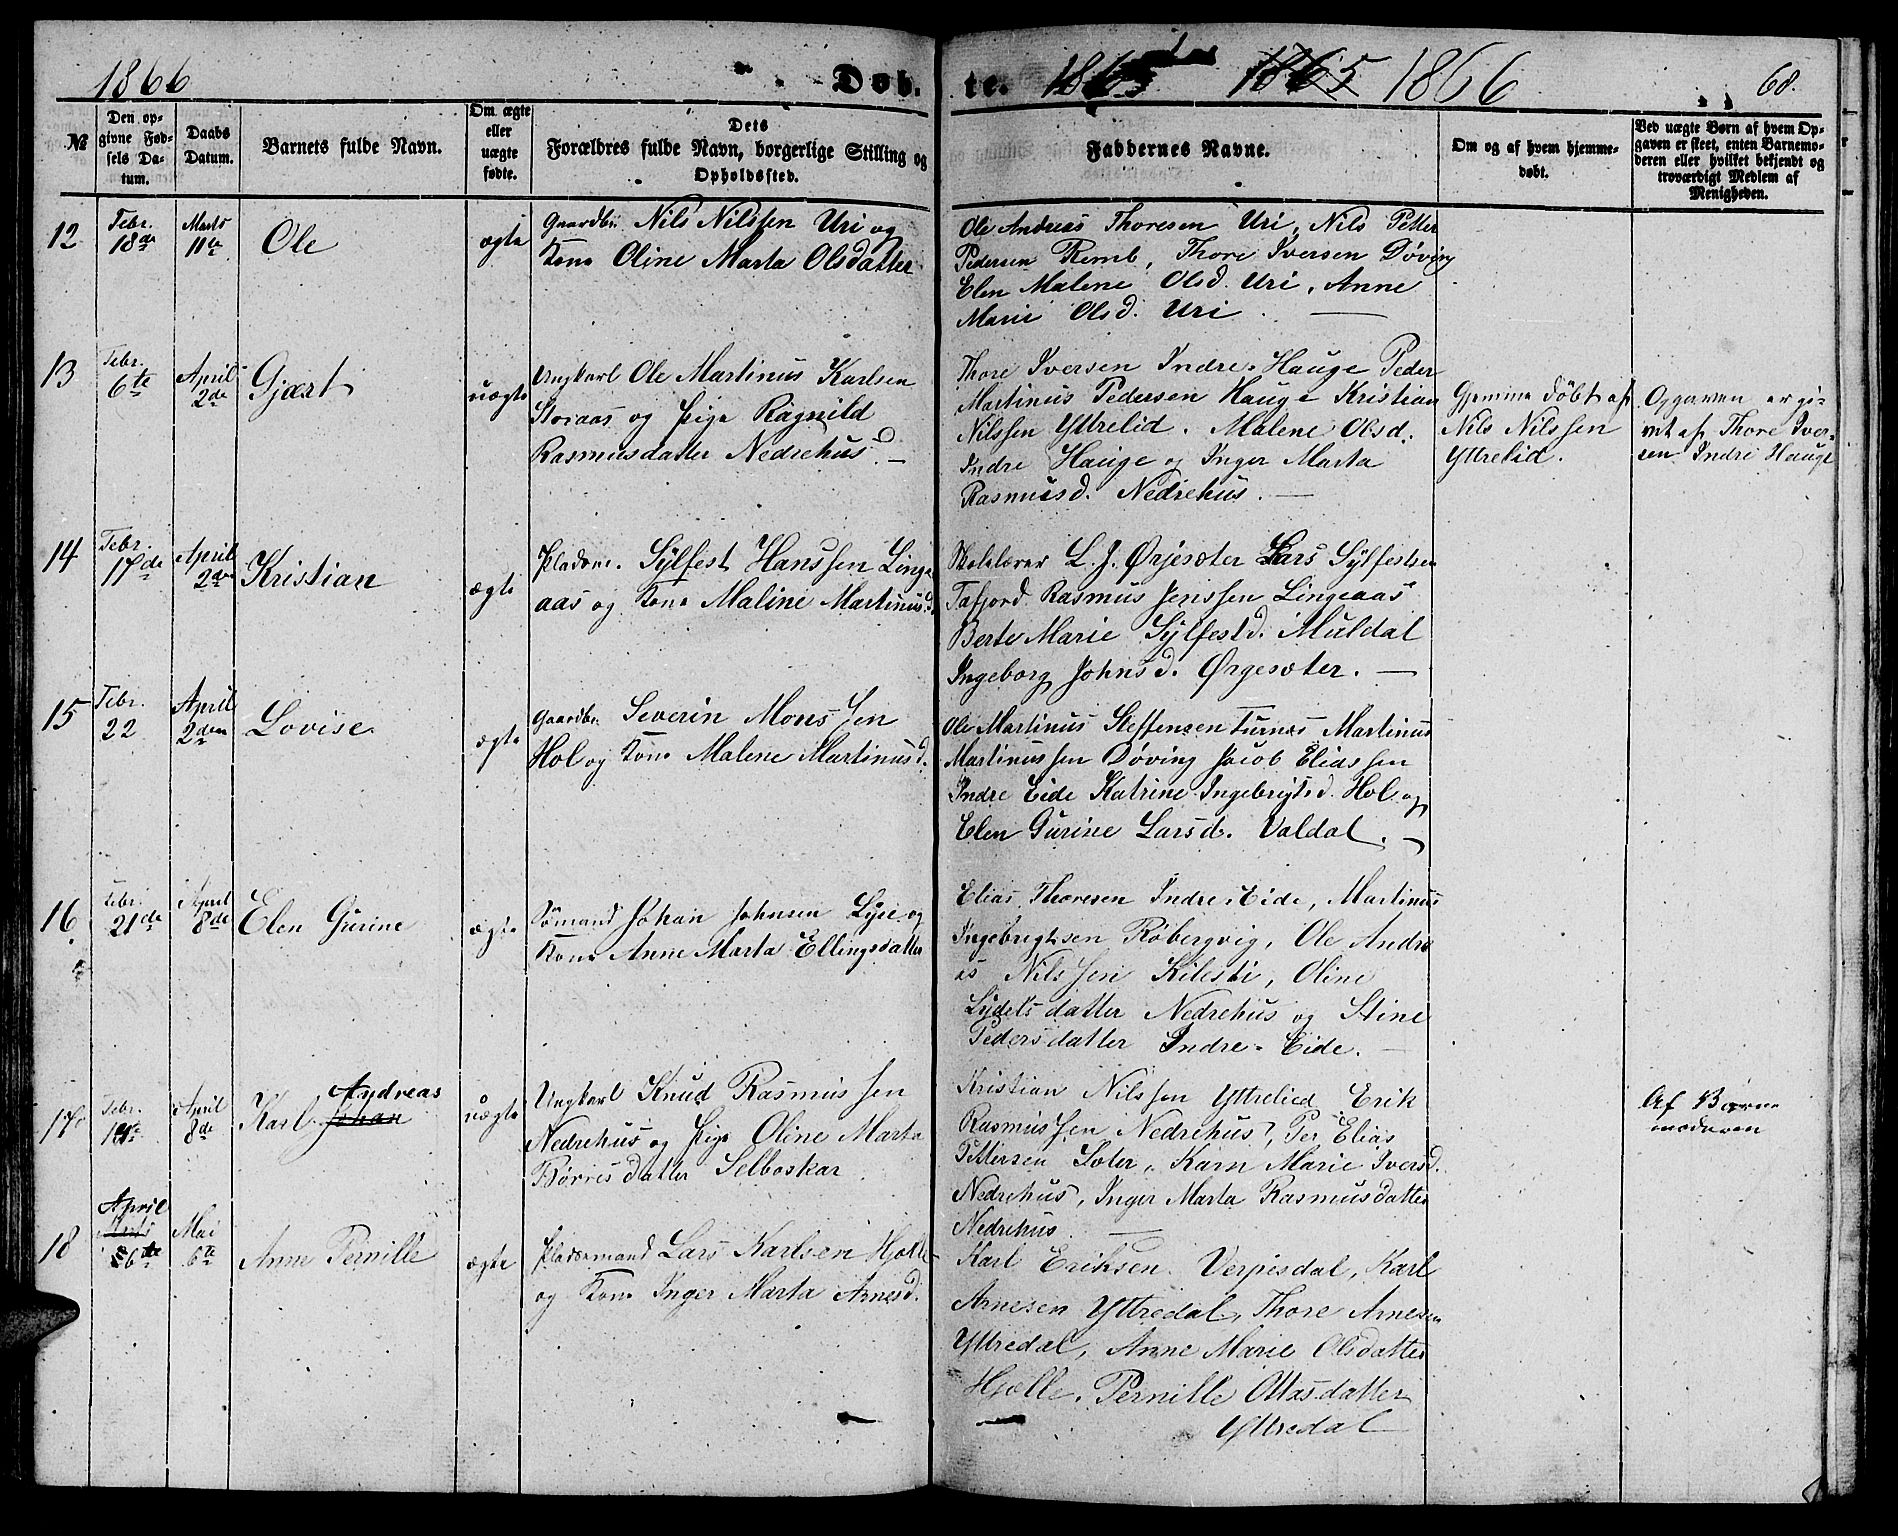 1866 Døb- te. 1865 1865 1866 68.
№
Den op-
givne Fød-
sels Da-
tum.
Daabs
Datum.
Barnets fulde Navn.
Om ægte
eller
uægte
fødte.
Dets
Forældres fulde Navn, borgerlige Stilling og
Opholdssted.
Faddernes Navne.
Om og af hvem hjemme-
døbt.
Ved uægte Børn af hvem Op-
gaven er skeet, enten Barnemo-
deren eller hvilket bekjendt og
troværdigt Medlem af
Menigheden.
12
Febr.
18de
Marts
11te
Ole
ægte
Gaardbr. Nils Nilssen Uri og
Kone Oline Marta Olsdatter
Ole Andreas Thoresen Uri, Nils Petter
Pedersen Remb, Thore Iversen Døving
Elen Malene Olsd. Uri, Anne
Marie Olsd. Uri. —
13
Febr.
6te
April
2de
Gjært
uægte
Ungkarl Ole Martinus Karlsen
Storaas og Pige Ragnild
Rasmusdatter Nedrehus. —
Thore Iversen Indre-Hauge Peder
Martinus Pedersen Hauge Kristian
Nilssen Yttrelid. Malene Olsd.
Indre Hauge og Inger Marta
Rasmusd. Nedrehus. —
Hjemme døbt af
Nils Nilssen
Yttrelid.
Opgaven er gi-
vet af Thore Iver-
sen Indre Hauge
14
Febr.
17de
April
2den
Kristian
ægte
Pladsm. Sylfest Hanssen Linge
aas og Kone Maline Martinusd.
Skolelærer L. J. Ørjesæter Lars Sylfestsen
Tafjord Rasmus Jenssen Lingeaas
Berte Marie Sylfestd. Muldal
Ingeborg Johnsd. Ørgesæter. —
15
Febr.
22
April
2den
Lovise
ægte
Gaardbr. Severin Monssen
Hol og Kone Malene Martinusd.
Ole Martinus Steffensen Furnes Martinus
Martinussen Døving Jacob Eliassen
Indre Eide Katrine Ingebrigtsd. Hol og
Elen Gurine Larsd. Valdal. —
16
Febr.
21de
April
8de
Elen Gurine
ægte
Sømand Johan Johnsen Lyse og
Kone Anne Marta Ellingsdatter
Elias Thoresen Indre Eide, Martinus
Ingebrigtsen Røbergvig, Ole Andre
as Nilssen Kilesti, Oline
Sjdelsdatter Nedrehus og Stine
Pedersdatter Indre-Eide. —
17
Febr.
14de
April
8de
Andreas
Karl Johan
uægte
Ungkarl Knud Rasmussen
Nedrehus og Pige Oline Marta
Børresdatter Selboskar
Kristian Nilssen Yttrelied Erik
Rasmussen Nedrehus, Per Elias
Pettersen Sæter, Karn Marie Iversd.
Nedrehus, Inger Marta Rasmusdatter
Nedrehus. —
Af Barne
moderen
18
April
Marts
6te
Mai
6te
Anne Pernille
ægte
Pladsmand Lars Karlsen Hjelle
og Kone Inger Marta Arnesd.
Karl Eriksen Verpesdal, Karl
Arnesen Yttredal, Thore Arnesen
Yttredal, Anne Marie Olsdatter
Hjelle, Pernille Ottasdatter
Yttredal